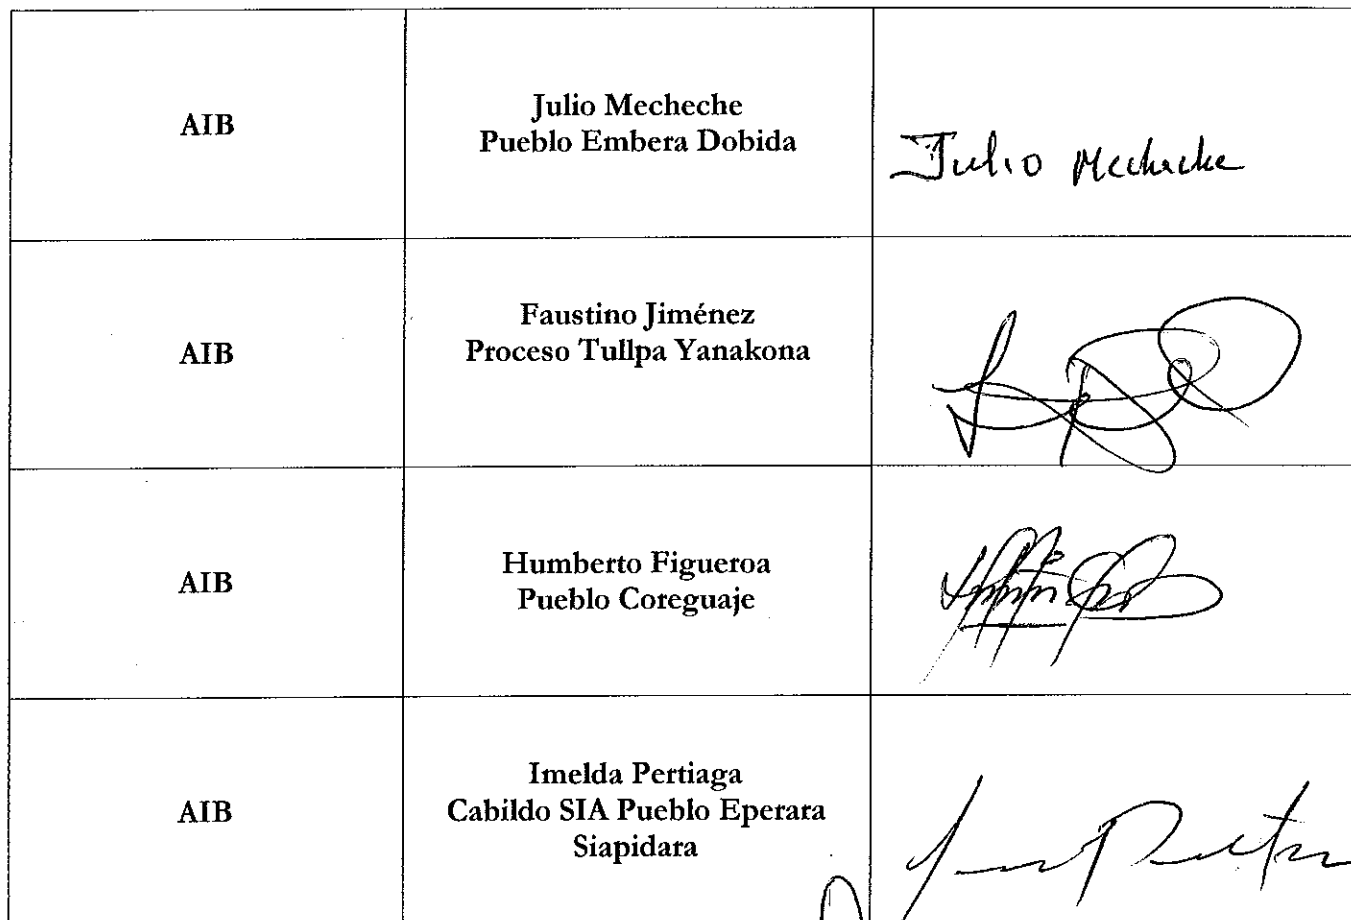 AIB
Julio Mecheche
Pueblo Embera Dobida
Julio Mecheche
AIB
Faustino Jiménez
Proceso Tullpa Yanakona
AIB
Humberto Figueroa
Pueblo Coreguaje
AIB
Imelda Pertiaga
Cabildo SIA Pueblo Eperara
Siapidara